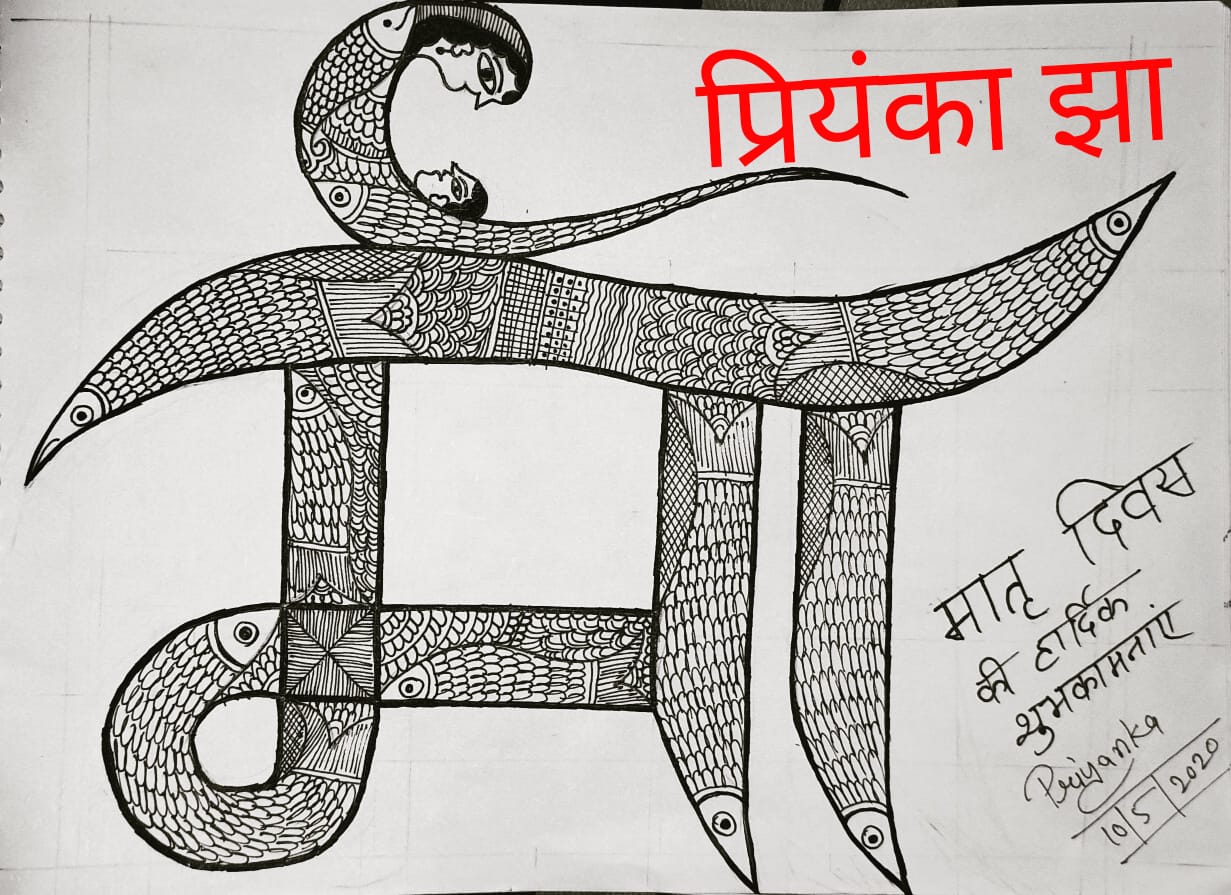 प्रियंका झा
माँ
मातृ दिवस
की हार्दिक
शुभकामनाएं
Priyanka
10/5/2020